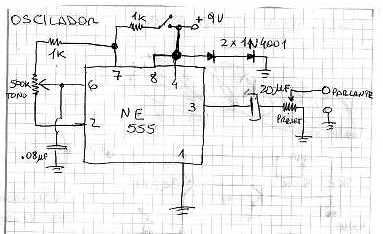 OSCILADOR
1K
+9V
2 x 1N4001
1K
7
8
4
500K
TONO
6
NE
555
3
20µF
PARLANTE
PRESET
2
1
.08µF